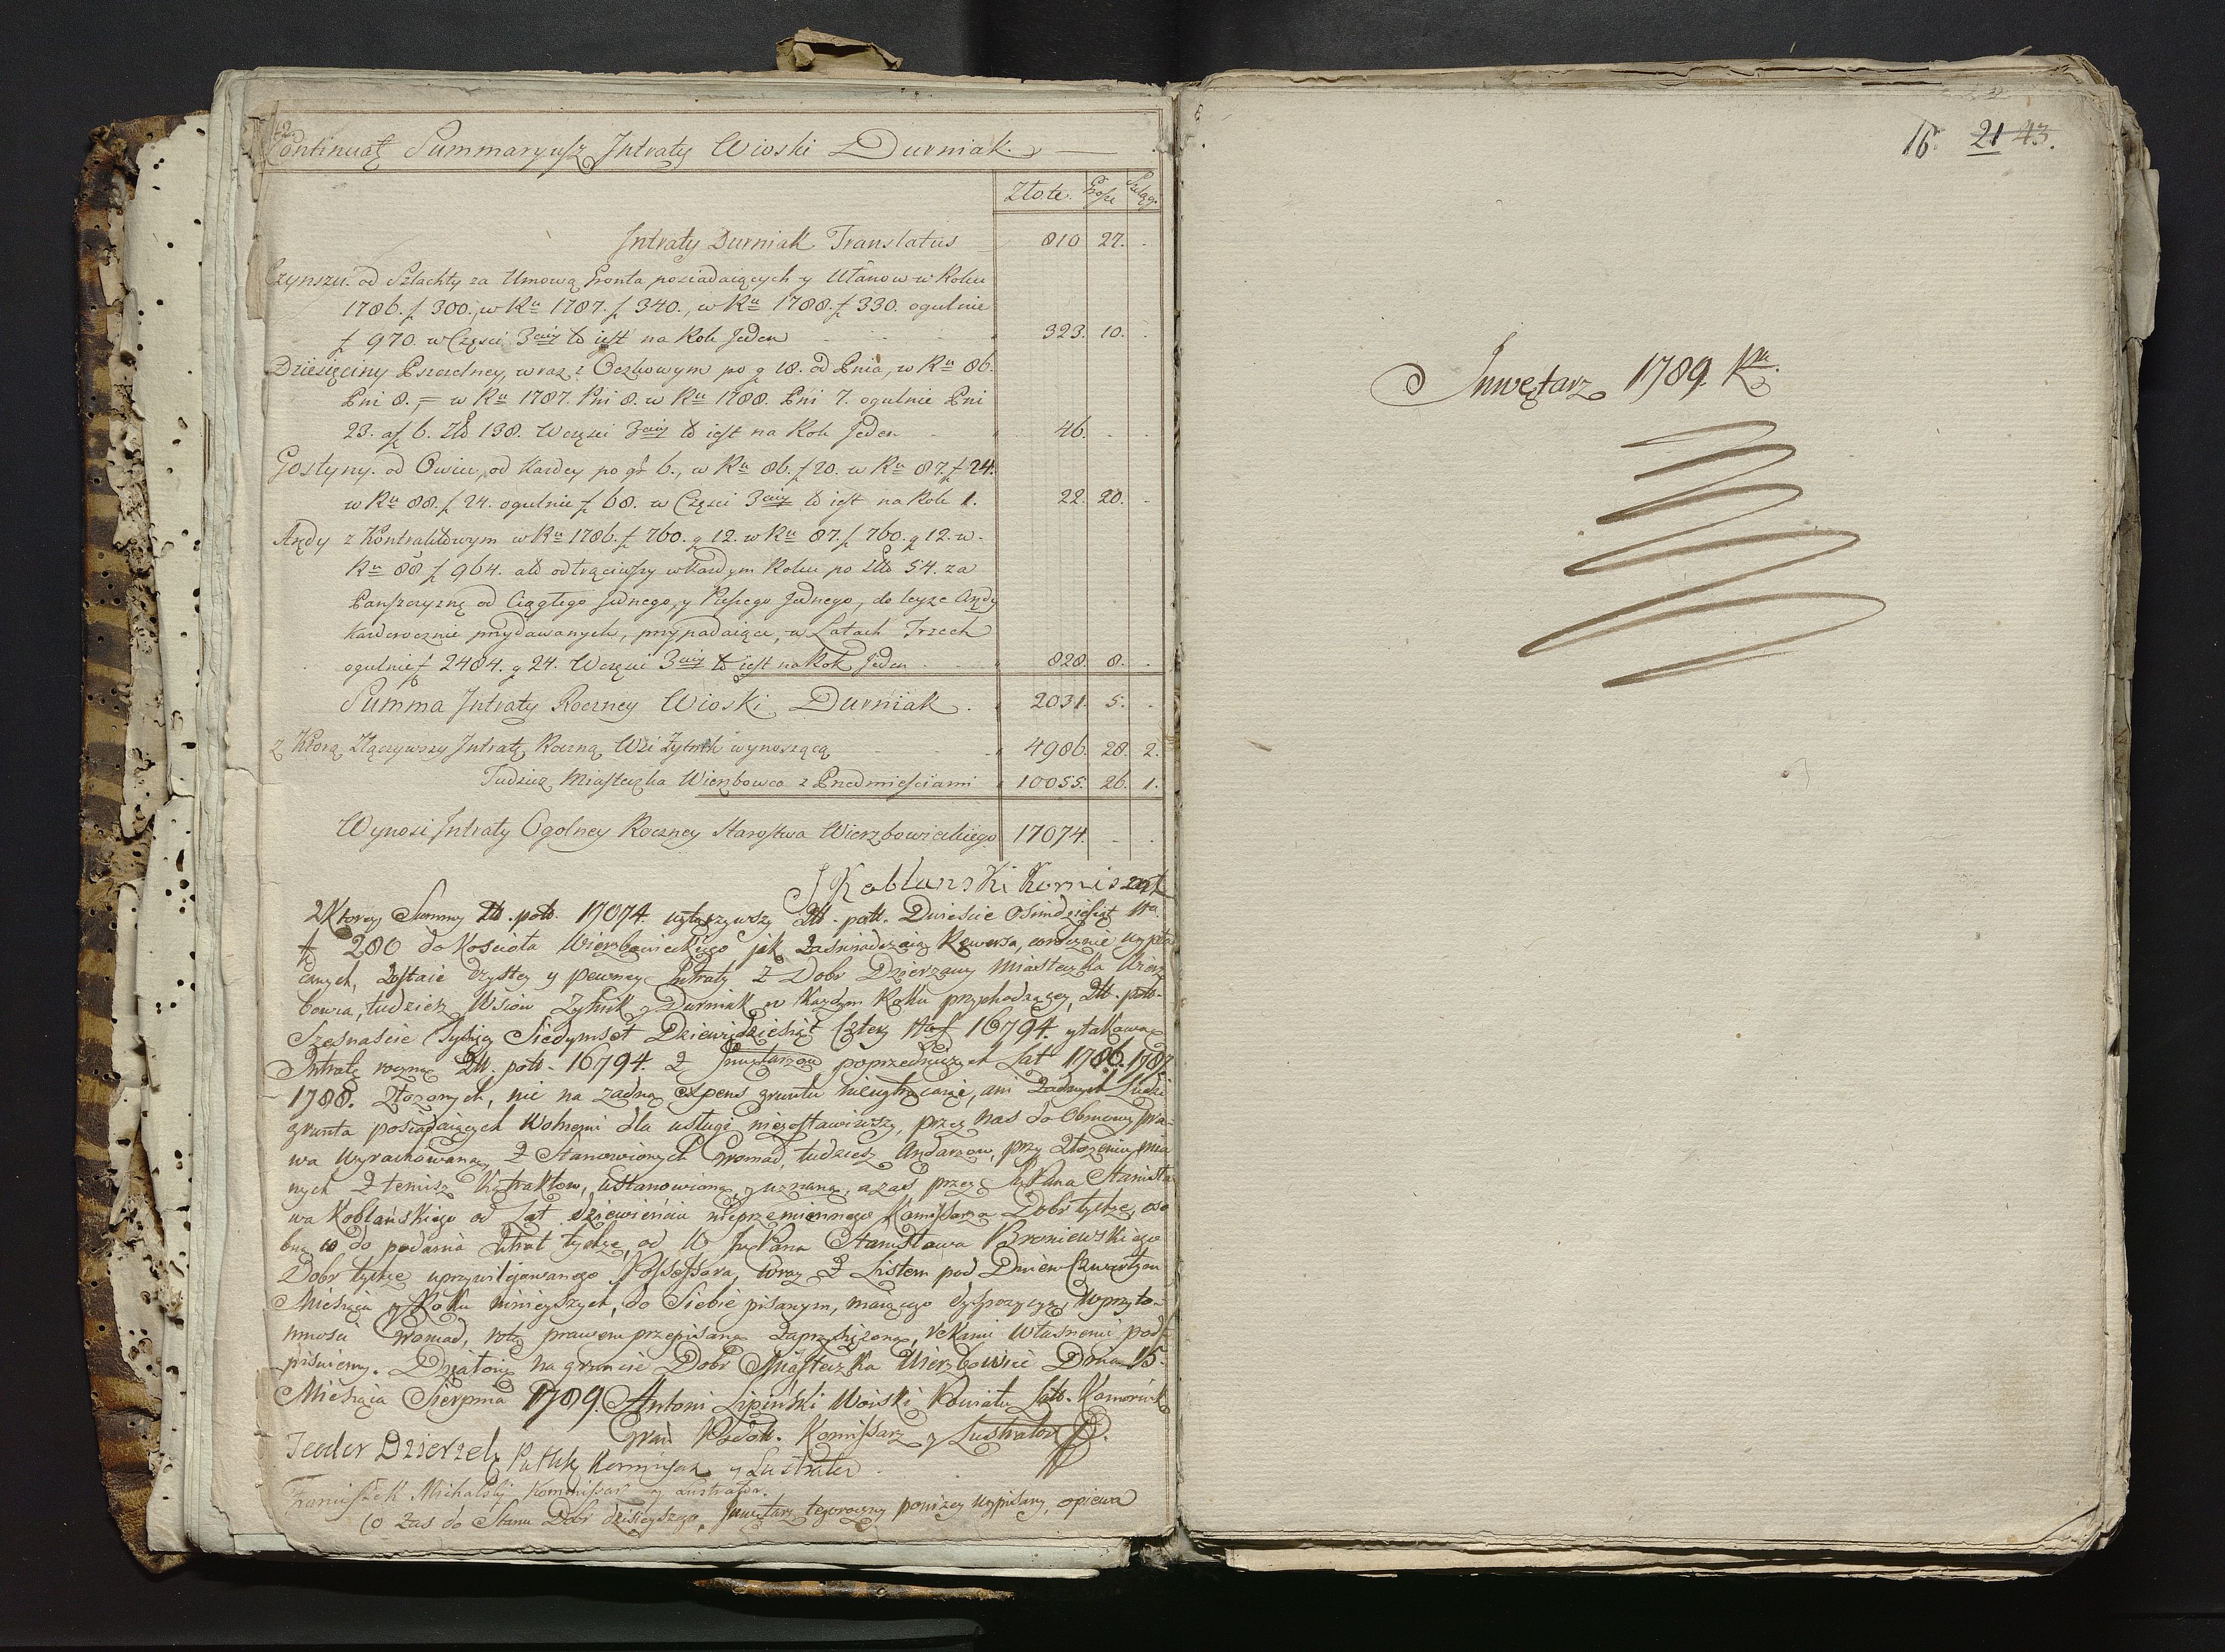 42
Continuatę Summaryusz Intraty Wioski Durniak
Złote. Grosze Szeląg.
Intraty Durniak Translatus 810 27. -
Czynszu. od Szlachty za Umową Gronta posiadaiących y Ułanow w Roku
1786. f 300., w Ru 1787. f 340., w Ru 1788. f 330. ogulnie
f 970. w Części 3ciey to iest na Rok Jeden 323. 10. -
Dziesięciny Pszczelney, wraz z Oczkowym po g 18. od Pnia, w Ru 86.
Pni 8. w Ru 1787. Pni 8. w Ru 1788. Pni 7. ogulnie Pni
23. af 6. Złt 138. Wczęsci 3ciey to iest na Rok Jeden 46. - -
Gostyny. od Owiec, od Kazdey po gr 6., w Ru 86. f 20. w Ru 87. f 24.
w Ru 88. f 24. ogulnie f 68. w Częsci 3ciey to iest na Rok 1. 22. 20. -
Arędy z Kontraktowym w Ru 1786. f 760. g 12. w Ru 87. f 760. g 12. w
Ru 88 f 964. ato odtrąciwszy w Kazdym Roku po Złt 54. za
Panszczyznę od Ciągłego Jednego, y Pieszego Jednego, do teyze Arędy
Kazdorocznie przydawanych, przypadaiące, w Latach Trzech
ogulnie f 2484. g 24. Wczęsci 3ciey to iest na Rok Jeden 828. 8. -
Summa Intraty Roczney Wioski Durniak. 2031. 5. -
Z Ktorą Złączywszy Intratę Roczną Wsi Żytnik wynoszącą 4986. 28. 2.
Tudziez Miasteczka Wierzbowca z Przedmieściami 10055. 26. 1.
Wynosi Intraty Ogolney Roczney Starostwa Wierzbowieckiego 17074. - -
J Kobłanski Komisarz
Z Ktorey Summy Złł. poll. 17074. wyłączywszy Złł. poll. Dwieście Osimdziesiąt Nro.
f 280 do Kościoła Wierzbowieckiego jak zaświadczaią Rewersa, corocznie wypła
conych, Zostaie czystey y pewney Intraty z Dobr Dzierzawy Miasteczka Wierz
bowca, tudziesz Wsiow Zytnik y Durniak w Kazdym Roku przychodzącey, Złł. poll.
Szesnaście Tysięcy Siedymset Dziewiędziesiąt Cztery Nro f 16794. y takową
Intratę roczną Złł. poll. 16794. z Inwętarzow poprzedniczych Lat 1786. 1787.
1788. Złozonych, nic na zadną expens gruntu niewytrącaiąc, ani Zadnych Ludzi
grunta posiadaiących Wolnemi dla usługi niezostawiwszy, przez nas do Obmowy Pra-
wa Wyrachowaną, z Stanowionych Gromad, tudziesz Arędarzow, przy Złozeniu mia
nych z temisz Kątraktow, ustanowioną, y uznaną, azas przez JPana Stanisła
wa Kobłańskiego od Lat dziewieńciu nieprzemiennego Kommissarza Dobr tychze, oso
bną do podania Intrat tychze, od W JmPana Stanisława Broniewskiego
Dobr tychze uprzywilejowanego Possessora, wraz z Listem pod Dniem Czwartym
Miesiąca y Roku ninieyszych, do Siebie pisanym, maiącego dyspozycyą, w przyto-
mności Gromad, rotą prawem przepisaną Zaprzysięzoną, rękami Własnemi podp
piśuiemy. Dziáło się na gruncie Dobr Miasteczka Wierzbowiec Dnia 15.
Miesiąca Sierpnia 1789. Antoni Lipiński Woiski Powiatu Lat. Kamornik
gran Podoł. Komissarz y Lustrator
Teodor Dzierzek Kommissarz y Lustrator
Franciszek Michalski Kommissarz y Lustrator.
Co Zas do Stanu Dobr dzisieyszego, Inwętarz tegoroczny ponizey wypisany, opiewa
16. 21 43.
Inwętarz 1789. Ru.